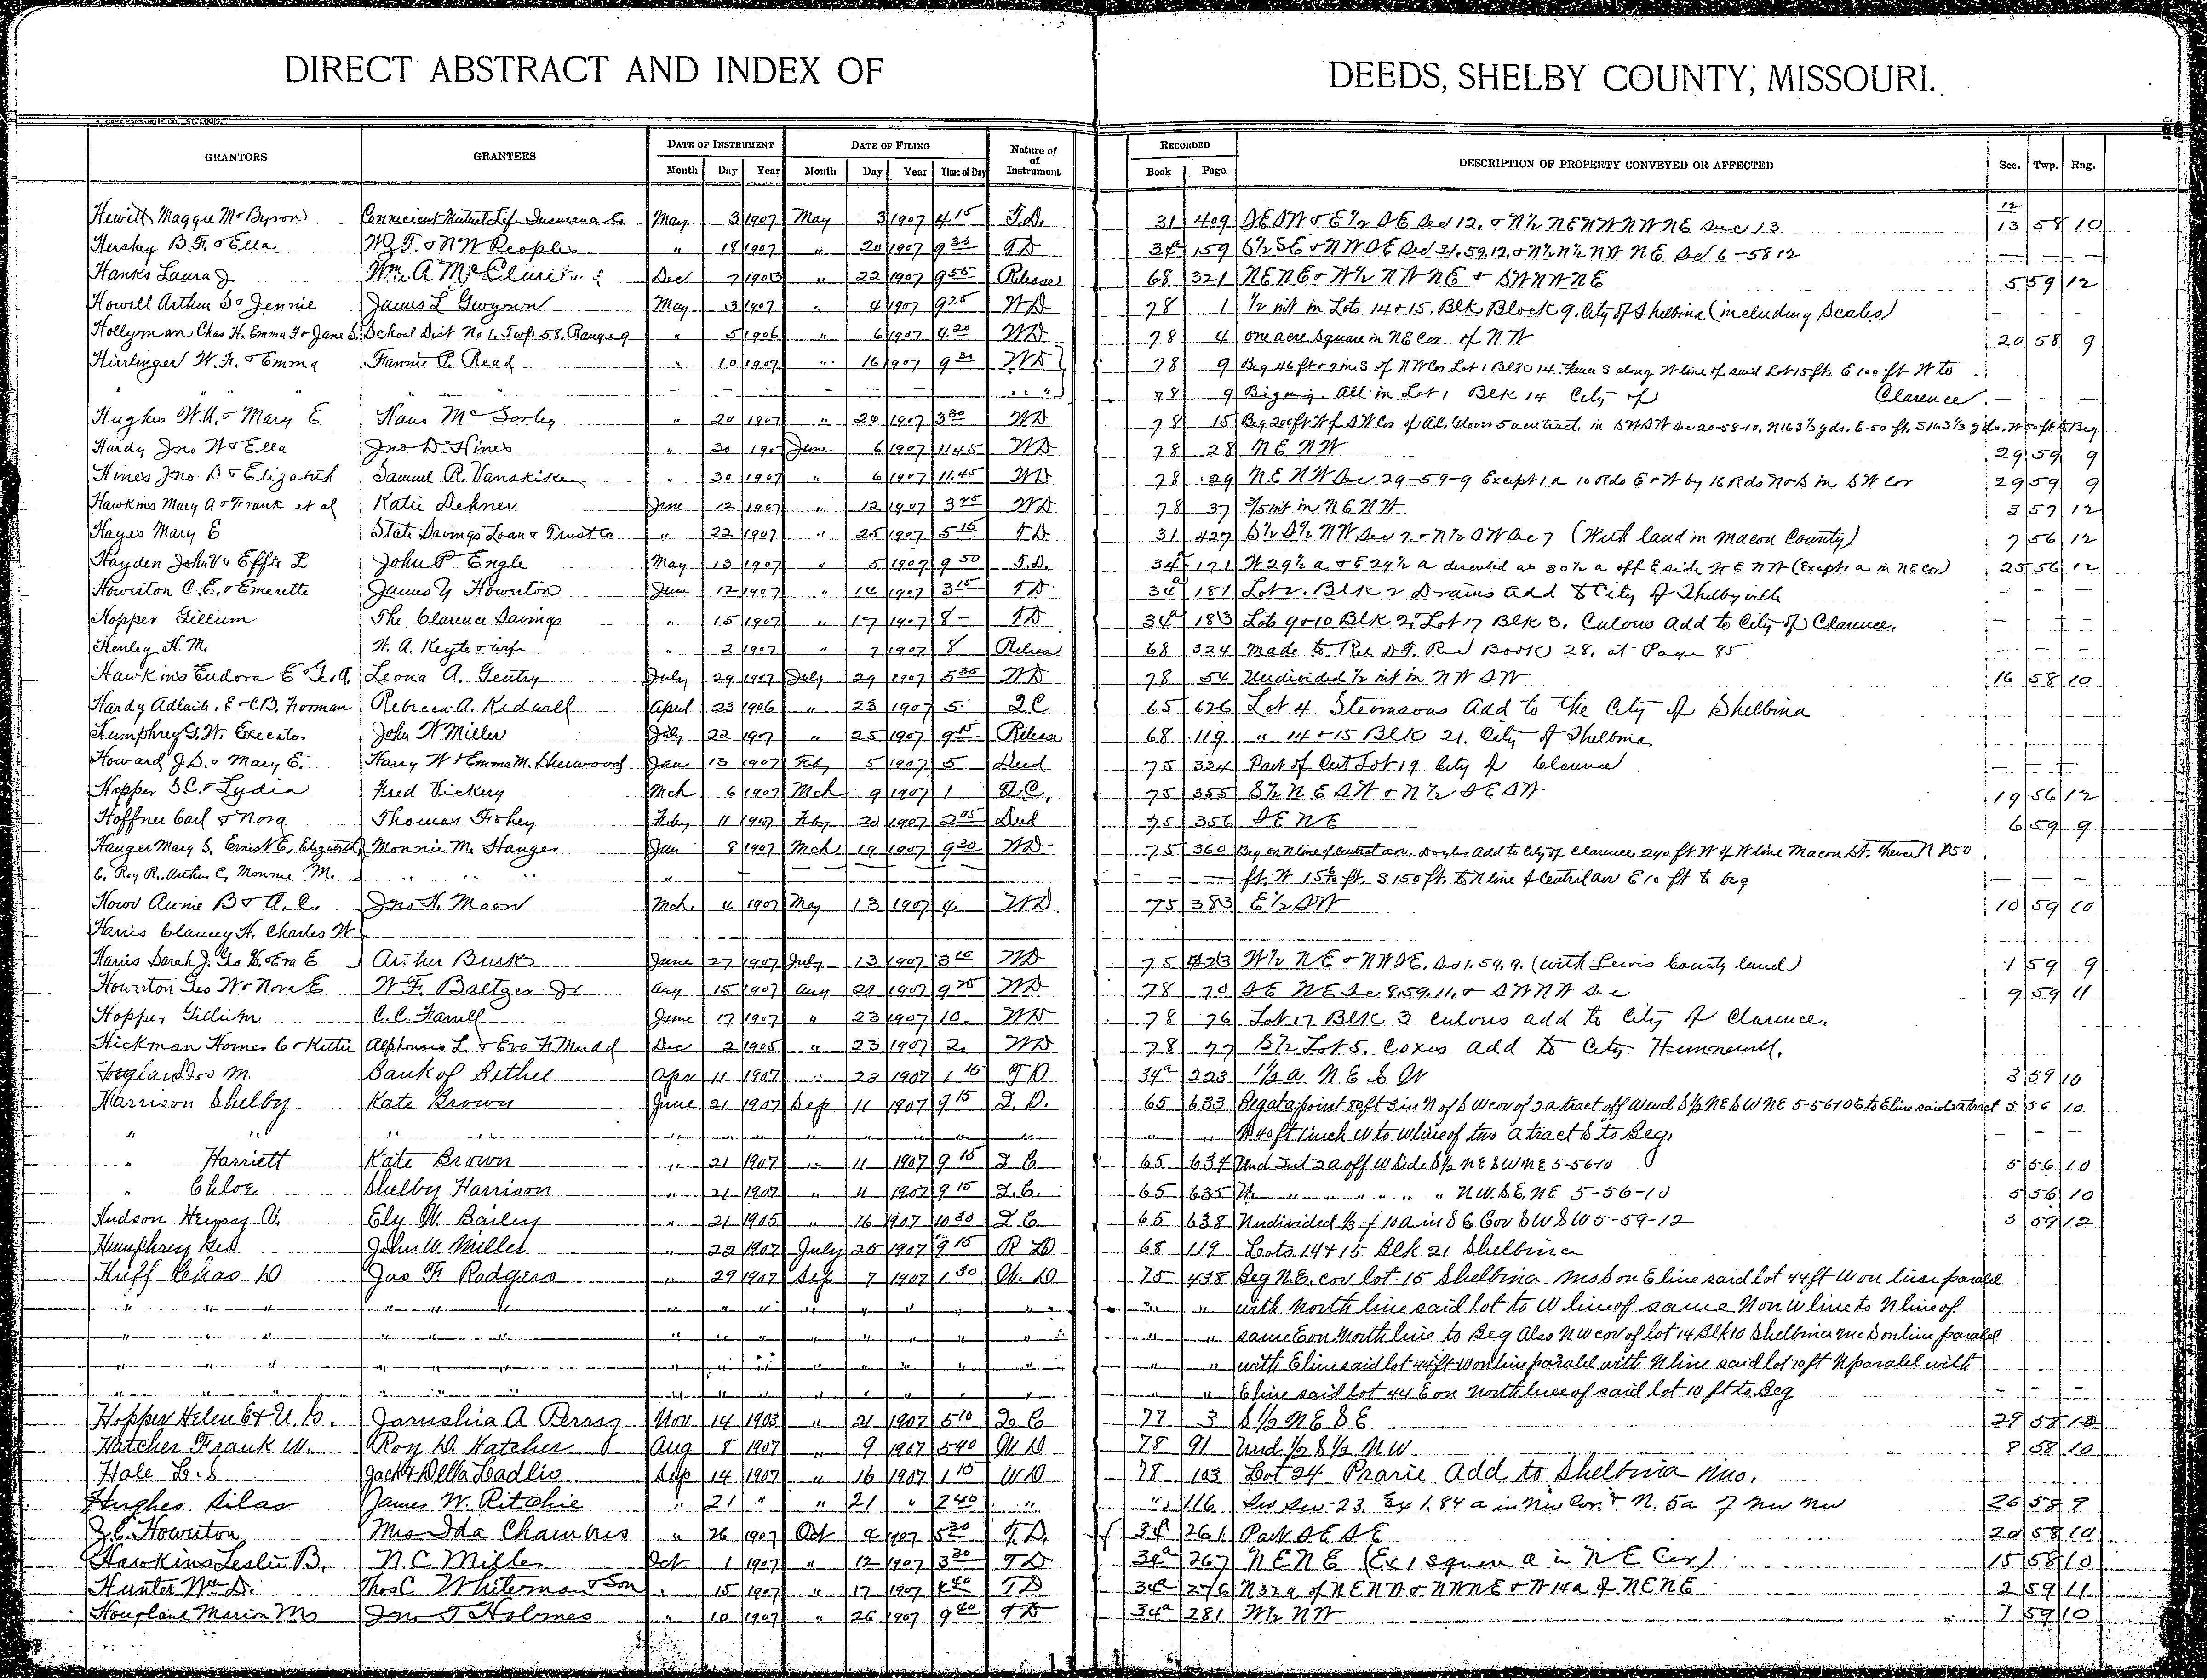 DIRECT ABSTRACT AND INDEX OF DEEDS, SHELBY COUNTY, MISSOURI.
GRANTORS GRANTEES DATE OF INSTRUMENT DATE OF FILING Nature of of Instrument RECORDED DESCRIPTION OF PROPERTY CONVEYED OR AFFECTED Sec. Twp. Rng.
Month Day Year Month Day Year Time of Day Book Page
Hewitt Maggie M & Byron Connecicut Mutual Life Insurance Co May 3 1907 May 3 1907 4 15 T.D. 31 409 SE SW & E 1/2 SE Sec 12. & N 1/2 NE NW NW NE Sec 13 12 13 58 10
Hershey B.F. & Ella & N W Peoples " 18 1907 " 20 1907 9 35 TD 34a 159 S 1/2 SE & NW SE Sec 31.59.12. & N 1/2 N 1/2 NW NE Sec 6-58 12 — — —
Hanks Laura J Wm. A Dec 7 1903 " 22 1907 9 55 Release 68 321 NE NE & N 1/2 NW NE & SW NW NE 5 59 12
Howell Arthur S & Jennie James L Gwynn May 3 1907 " 4 1907 9 25 WD 78 1 1/2 int in Lots 14 & 15. Blk Block 9. City of Shelbina (including Scales) — — —
Hollyman Chas H. Emma F & Jane S. School Dist No 1. Twp 58. Range 9 " 5 1906 " 6 1907 4 20 WD 78 4 one acre square in NE Cor of NW 20 58 9
Hirrlinger W.F. & Emma Fannie P. Read " 10 1907 " 16 1907 9 WD 78 9 Beg 46 ft & 7 in S. of NW Cor Lot 1 Blk 14. thence S along W line of said Lot 15 ft. E 100 ft W to
" " — — — — — — " " 78 9 Bigning. All in Lot 1 Blk 14 City of Clarence — — —
Hughes W.A. & Mary E Hans McSorley " 20 1907 " 24 1907 3 30 WD 78 15 Beg 200 ft W of SW Cor of A.C. Glovers 5 acre tract. in SW SW Sec 20-58-10. N 163 1/3 yds. E-50 ft. S 163 1/3 yds. W 50 ft to Beg
Hardy Jno W & Ella Jno D. Hines " 30 190 June 6 1907 11 45 WD 78 28 NE NW 29 59 9
Hines Jno D & Elizabeth Samuel R. Vanskike " 30 1907 " 6 1907 11.45 WD 78 29 NE NW Sec 29-59-9 Except 1 a 10 rds E & W by 16 rds N & S in SW cor 29 59 9
Hawkins Mary A & Frank et al Katie Dehner June 12 1907 " 12 1907 3 25 WD 78 37 3/5 int in NE NW 3 57 12
Hayes Mary E State Savings Loan & Trust Co " 22 1907 " 25 1907 5 15 TD 31 427 S 1/2 S 1/2 NW Sec 7. & N 1/2 SW Sec 7 (With land in Macon County) 7 56 12
Hayden John V & Effie L John P Engle May 13 1907 " 5 1907 9 50 T.D. 34a 171 W 29 1/2 a & E 29 1/2 a described as 30 1/2 a off E side NE NW (Except 1 a in NE Cor) 25 56 12
Howerton C.E. & Emerette James Y Howerton June 12 1907 " 14 1907 3 15 TD 34a 181 Lot 2. Blk 2 Drains Add to City of Shelbyville — — —
Hopper Gillium The Clarence Savings " 15 1907 " 17 1907 8 — TD 34a 183 Lots 9 & 10 Blk 2. Lot 17 Blk 3. Culvers Add to City of Clarence. — — —
Henley H.M. W.A. Keyte & wife " 2 1907 " 7 1907 8 Release 68 324 Made to Rel D.T. Rec Book 28. at Page 85 — — —
Hawkins Eudora E & Geo A. Leona A. Gentry July 29 1907 July 29 1907 5 35 WD 78 54 Undivided 1/2 int in NW SW 16 58 10
Hardy Adlaide. E & C.B. Forman Rebecca A. Kidwell April 23 1906 " 23 1907 5 Q C 65 626 Lot 4 Stemsons Add to the City of Shelbina
Humphrey G.W. Executor John W Miller July 22 1907 " 25 1907 9 15 Release 68 119 " 14 & 15 Blk 21. City of Shelbina — — —
Howard J.D. & Mary E. Harry W & Emma M. Sherwood Jan 13 1907 Feby 5 1907 5 Deed 75 334 Part of Out Lot 19 City of Clarence — — —
Hopper S.C. & Lydia Fred Vickery Mch 6 1907 Mch 9 1907 1 Q.C. 75 355 S 1/2 NE SW & N 1/2 SE SW 19 56 12
Hoffner Carl & Nora Thomas Fohey Feby 11 1907 Feby 20 1907 2 05 Deed 75 356 SE NE 6 59 9
Hanger Mary S, Ernest E, Elizabeth Monnie M. Hanger Jan 8 1907 Mch 19 1907 9 30 WD 75 360 Beg on N line of Central ave. Doyles Add to City of Clarence 290 ft W of W line Macon St. thence N 150
C. Roy R., Arthur C, Monnie M. " " " " — — — — — ft. W 15 ft. S 150 ft. to N line of Central av E 10 ft to beg — — —
How Annie B & A.C. Jno H. Moon Mch 4 1907 May 13 1907 4 WD 75 383 E 1/2 SW 10 59 10
Harris Clancey H. Charles W
Harris Sarah J. Geo & Eva E Arthur Burk June 27 1907 July 13 1907 3 10 WD 75 423 W 1/2 NE & NW SE. Sec 1.59.9. (with Lewis County land) 1 59 9
Howerton Geo W & Nova E W F. Baltzer Jr Aug 15 1907 Aug 21 1907 9 25 WD 78 70 SE NE Sec 8.59.11. & SW NW Sec 9 59 11
Hopper Gillium C.C. Farrell June 17 1907 " 23 1907 10 WD 78 76 Lot 17 Blk 3 Culvers add to City of Clarence.
Hickman Homer C & Kittie Alphonsus L. & Eva F. Mudd Dec 2 1905 " 23 1907 2 WD 78 77 S 1/2 Lot 5. Coxes add to City Hunnewell.
M. Bank of Bethel Apr 11 1907 " 23 1907 1 TD 34a 223 1/2 a NE SW 3 59 10
Harrison Shelby Kate Brown June 21 1907 Sep 11 1907 9 15 Q.D. 65 633 Beg at a point 80 ft 3 in N of SW cor of 2 a tract off W end S 1/2 NE SW NE 5-56 10 E to E line said 2 a tract 5 56 10
" " " " " " " " " " " " " N 40 ft 1 inch W to W line of two a tract S to Beg. — — —
" Harriett Kate Brown " 21 1907 " 11 1907 9 15 Q C 65 634 Und Int 2 a off W Side S 1/2 NE SW NE 5-56 10 5 56 10
" Chloe Shelby Harrison " 21 1907 " 11 1907 9 15 Q.C. 65 635 " " " " " " N.W.S.E. NE 5-56-10 5 56 10
Hudson Henry A. Ely W. Bailey " 21 1905 " 16 1907 10 30 Q C 65 638 Undivided 1/3 of 10 a in SE Cor SW SW 5-59-12 5 59 12
Humphrey Geo John W. Miller " 22 1907 July 25 1907 9 15 R D 68 119 Lots 14 & 15 Blk 21 Shelbina
Huff Chas D Jas F. Rodgers " 29 1907 Sep 7 1907 1 30 W. D 75 438 Beg N.E. cor lot 15 Shelbina Mo S on E line said lot 44 ft W on line paralel
" " " " " " " " " " " " " " with North line said lot to W line of same N on W line to N line of
" " " " " " " " " " " " " " same E on North line to Beg Also NW cor of lot 14 Blk 10 Shelbina Mo S on line paralel
" " " " " " " " " " " " " " with E line said lot 44 ft W on line paralel with N line said lot 10 ft N paralel with
" " " " " " " " " " " " " " E line said lot 44 E on North line of said lot 10 ft to Beg — — —
Hopper Helen E & U.G. Jarushia A Perry Nov 14 1903 " 21 1907 5 10 Q C 77 3 S 1/2 NE SE 29 58 12
Hatcher Frank W. Roy D. Hatcher Aug 8 1907 " 9 1907 5 40 W D 78 91 Und 1/2 S 1/2 N.W. 8 58 10
Hale L.S. Jack & Della Ladlie Sep 14 1907 " 16 1907 1 15 W D 78 103 Lot 24 Prarie Add to Shelbina Mo.
Hughes Silas James W. Ritchie " 21 " " 21 " 2 40 " " 116 Sec 23. Ex 1.84 a in NW Cor. & N. 5a of NW NW 26 58 9
Z.C. Howerton Mrs Ida Chambers " 26 1907 Oct 4 1907 5 30 T.D. 34 261 Part SE SE 20 58 10
Hawkins Leslie B. N C Miller Oct 1 1907 " 12 1907 3 30 TD 34a 267 NE NE (Ex 1 square a in NE Cor) 15 58 10
Hunter Wm D. Thos C Whiteman & Son " 15 1907 " 17 1907 4 40 TD 34a 276 N 32 a of NE NW & NW NE & W 14 a of NE NE 2 59 11
Hougland Marion M Jno T Holmes " 10 1907 " 26 1907 9 40 TD 34a 281 W 1/2 NW 7 59 10